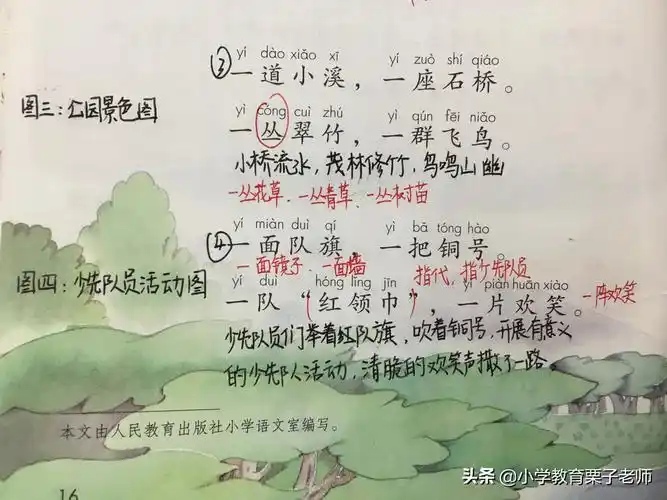 yí dào xiǎo xī yí zuò shí qiáo
③一道小溪，一座石桥。
图三：公园景色图
yì cóng cuì zhú yì qún fēi niǎo
一丛翠竹，一群飞鸟。
小桥流水，茂林修竹，鸟鸣山幽
一丛花草、一丛青草、一丛树苗
yí miàn duì qí yì bǎ tóng hào
④一面队旗，一把铜号。
一面镜子、一面墙 指代，指少先队员
图四：少先队员活动图
yí duì hóng lǐng jīn yí piàn huān xiào
一队“红领巾”，一片欢笑。一阵欢笑
少先队员们举着红队旗，吹着铜号，开展有意义
的少先队活动，清脆的欢笑声撒了一路。
本文由人民教育出版社小学语文室编写。
16
头条 @小学教育栗子老师